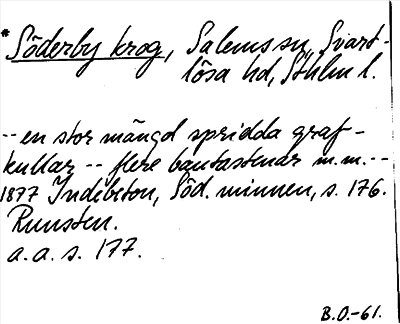 * Söderby krog, Salems sn, Svart-
lösa hd, Sthlm l.
-- en stor mängd spridda graf-
kullar -- flere bautastenar m.m. --
1877 Indebetou, Söd. minnen, s. 176.
Runsten.
a. a. s. 177.
B.O.-61.